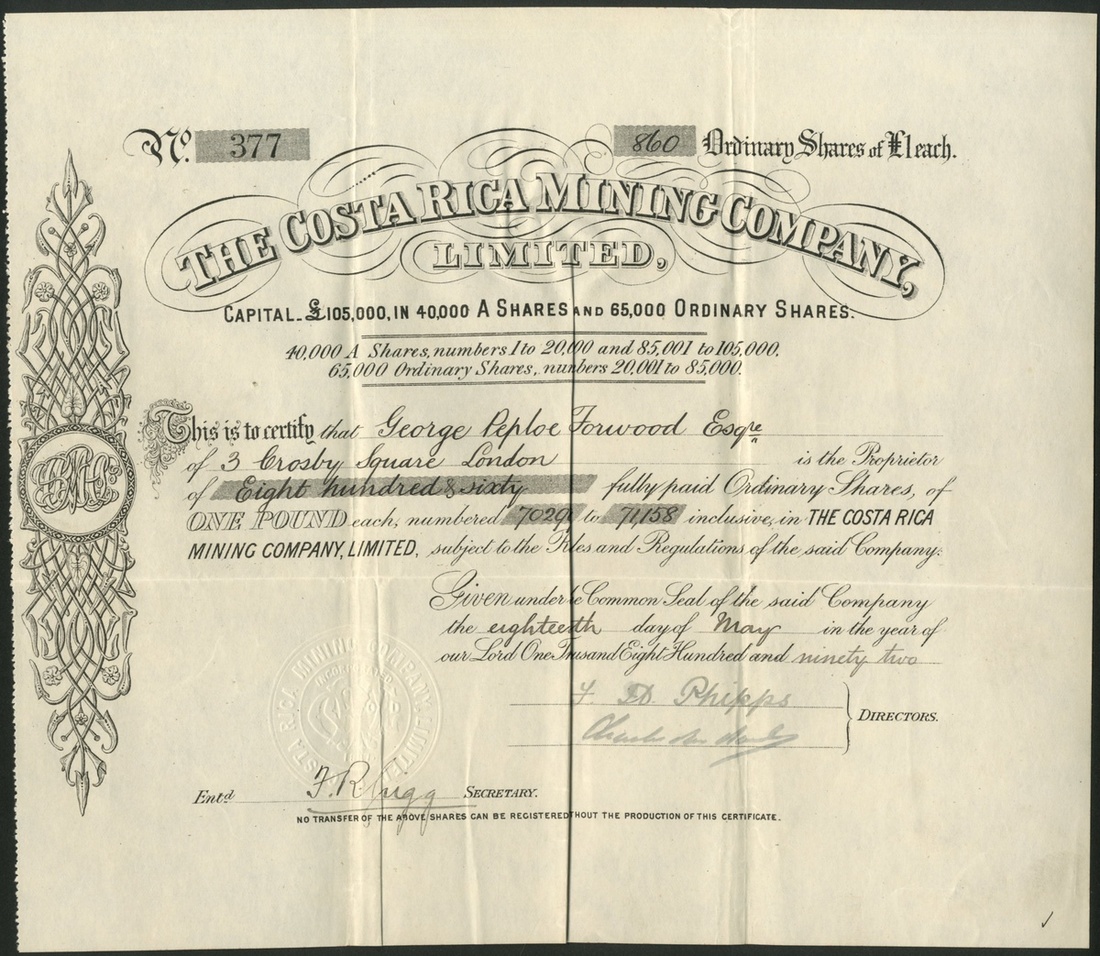 No. 377
860 Ordinary Shares of £1 each.
THE COSTA RICA MINING COMPANY,
LIMITED,
CAPITAL_ £105,000, IN 40,000 A SHARES AND 65,000 ORDINARY SHARES.
40,000 A Shares, numbers 1 to 20,000 and 85,001 to 105,000.
65,000 Ordinary Shares, numbers 20,001 to 85,000.
This is to certify that George Peploe Forwood Esqre
of 3 Crosby Square London is the Proprietor
of Eight hundred & sixty fully paid Ordinary Shares, of
ONE POUND each, numbered to 71,158 inclusive, in THE COSTA RICA
MINING COMPANY, LIMITED, subject to the and Regulations of the said Company.
Given under Common Seal of the said Company
the eighteenth day of May in the year of
our Lord One Eight Hundred and ninety two
Phipps
DIRECTORS.
Entd F. R. SECRETARY.
NO TRANSFER OF THE ABOVE SHARES CAN BE REGISTERED THOUT THE PRODUCTION OF THIS CERTIFICATE.
COSTA RICA MINING COMPANY LIMITED